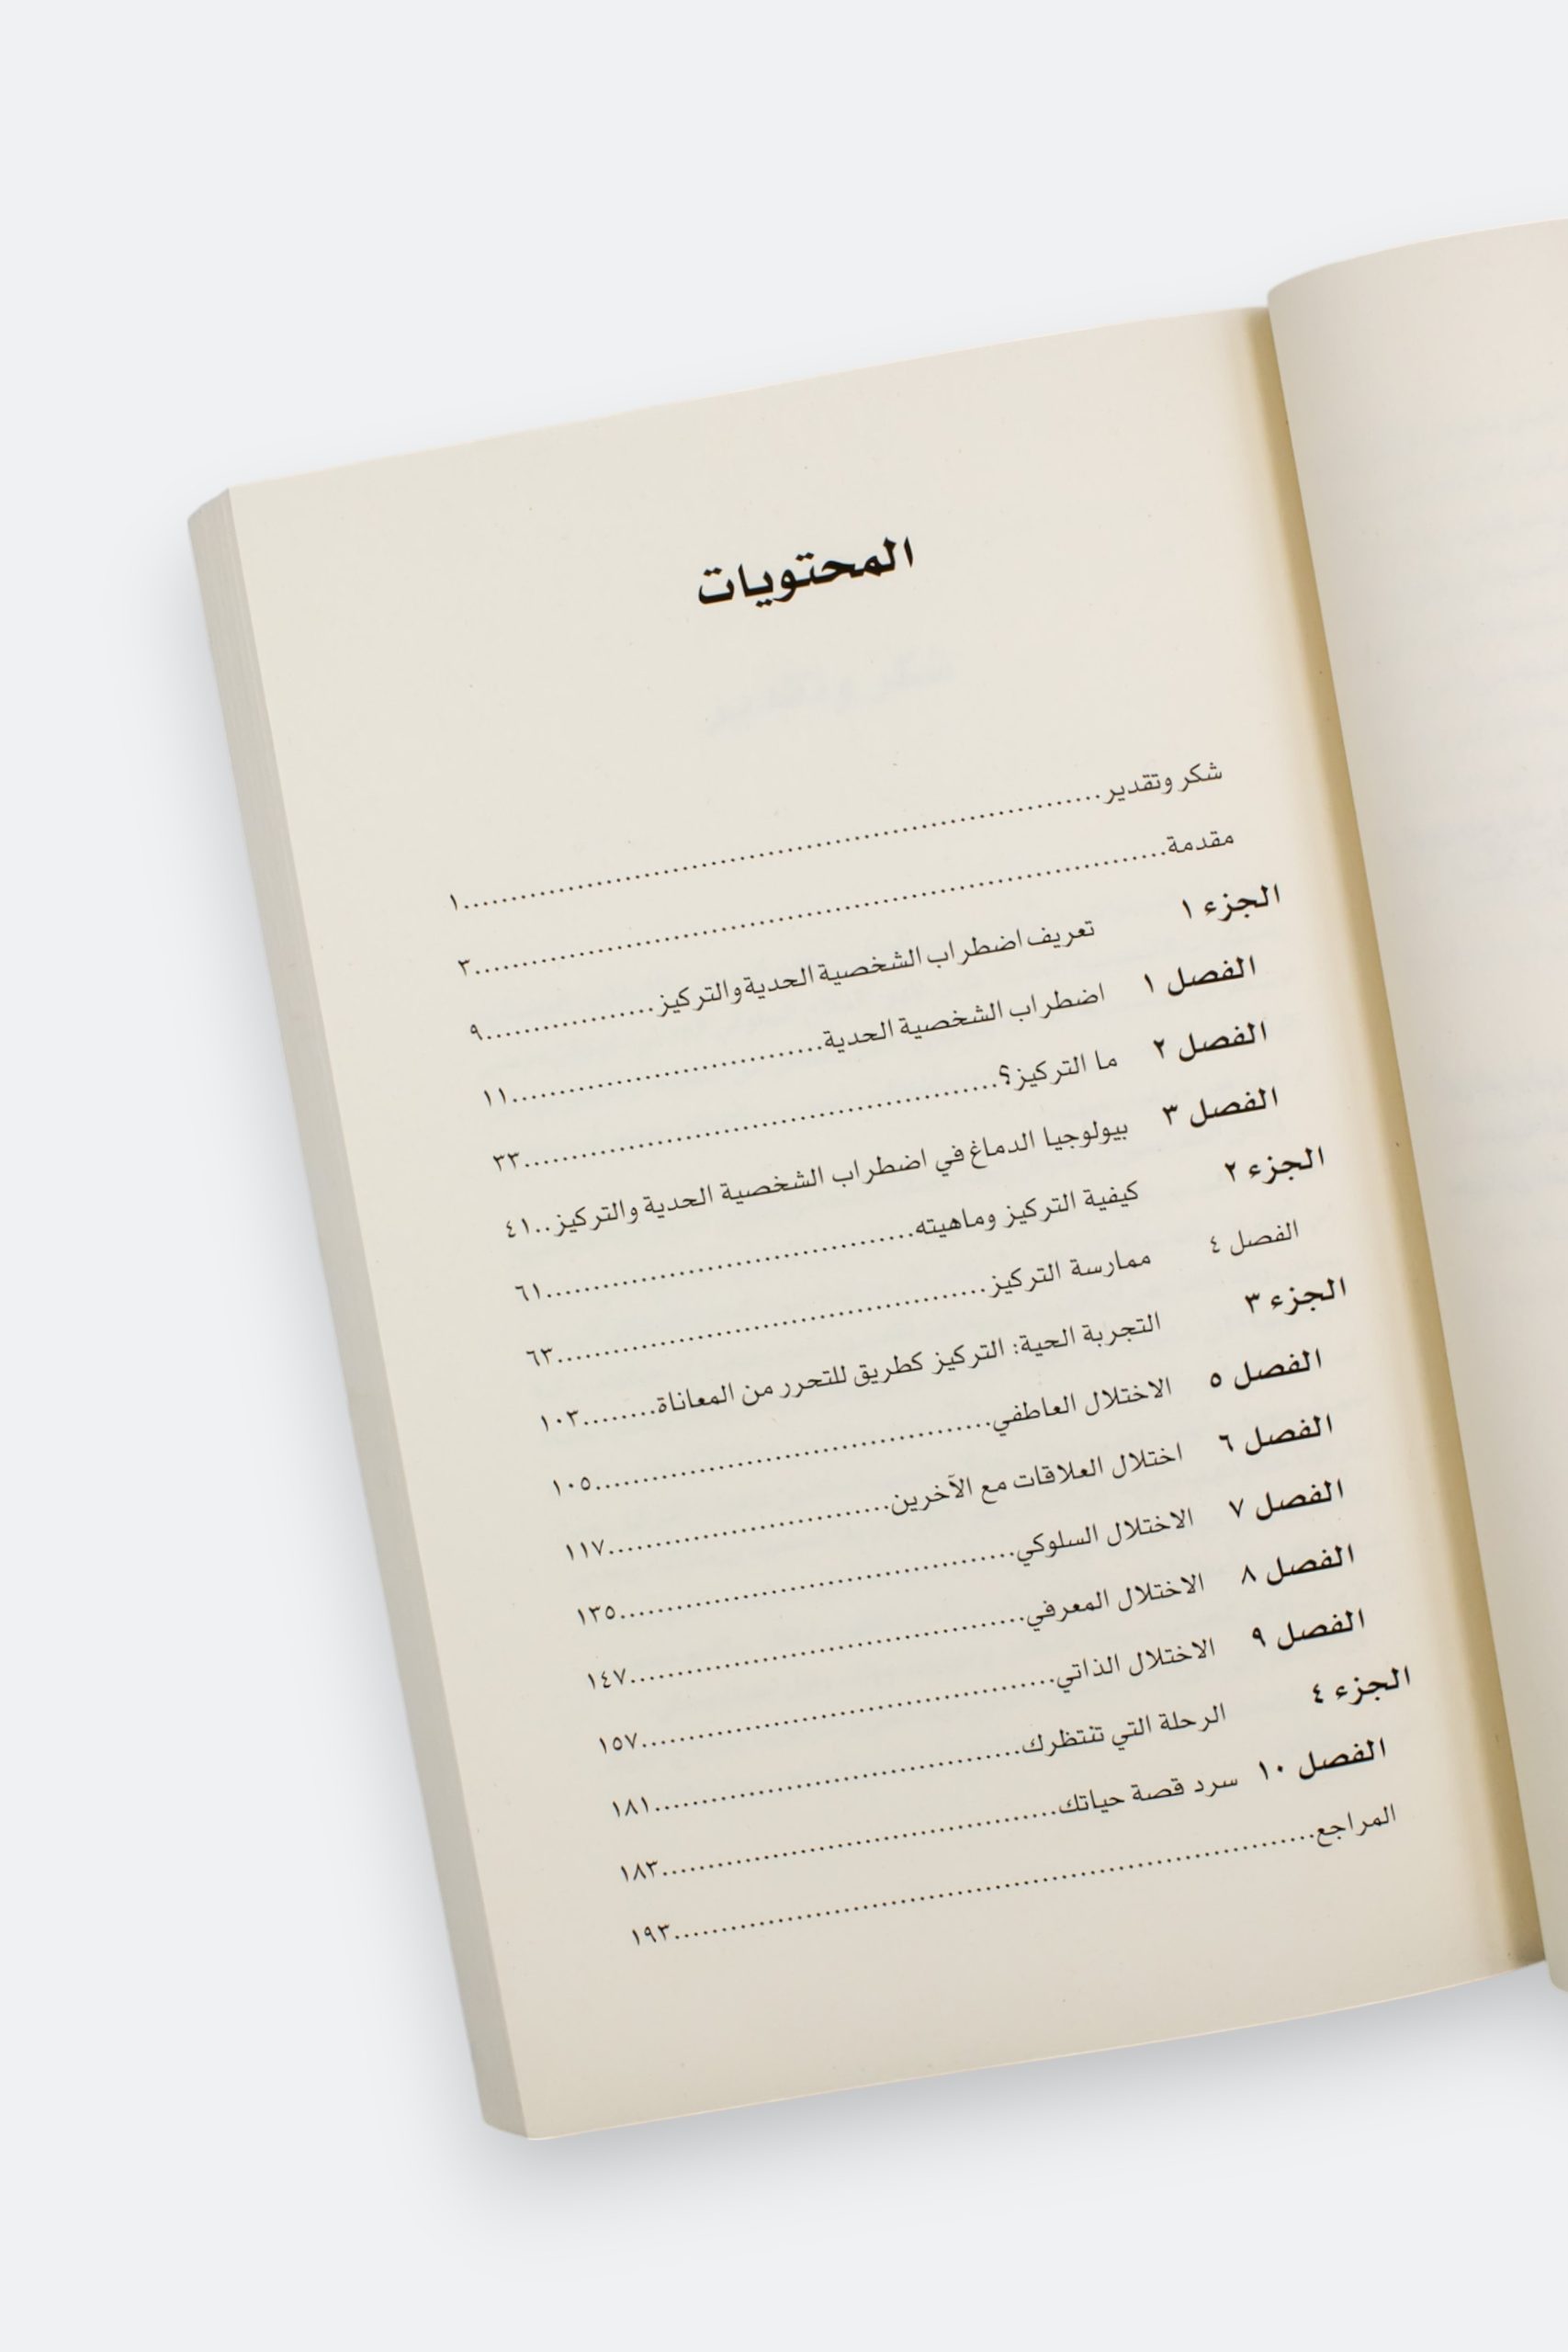 المحتويات
شكر وتقدير..........١
مقدمة..........٣
الجزء ١ تعريف اضطراب الشخصية الحدية والتركيز..........٩
الفصل ١ اضطراب الشخصية الحدية..........١١
الفصل ٢ ما التركيز؟..........٣٣
الفصل ٣ بيولوجيا الدماغ في اضطراب الشخصية الحدية والتركيز..٤١
الجزء ٢ كيفية التركيز وماهيته..........٦١
الفصل ٤ ممارسة التركيز..........٦٣
الجزء ٣ التجربة الحية: التركيز كطريق للتحرر من المعاناة........١٠٣
الفصل ٥ الاختلال العاطفي..........١٠٥
الفصل ٦ اختلال العلاقات مع الآخرين..........١١٧
الفصل ٧ الاختلال السلوكي..........١٣٥
الفصل ٨ الاختلال المعرفي..........١٤٧
الفصل ٩ الاختلال الذاتي..........١٥٧
الجزء ٤ الرحلة التي تنتظرك..........١٨١
الفصل ١٠ سرد قصة حياتك..........١٨٣
المراجع..........١٩٣